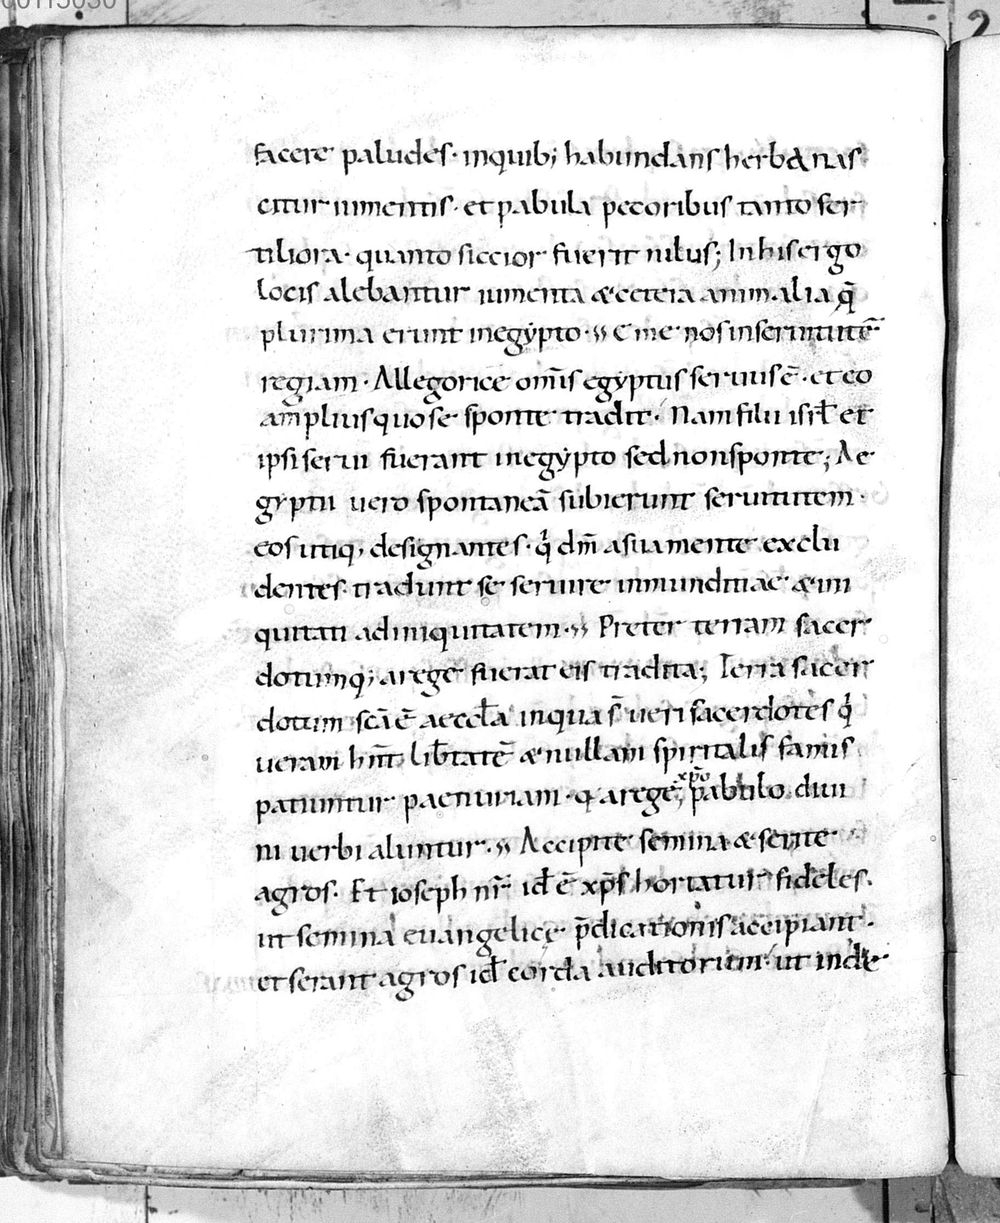 facere paludes· inquib; habundans herba & nas
citur iumentis· et pabula pecoribus tanto fer
tiliora· quanto siccior fuerit nilus; In his ergo
locis alebantur iumenta & cetera animalia q̄
plurima erunt in egẏpto· Eme nos in seruitutē
regiam· Allegorice om̄is egẏptus seruus ē· et eo
amplius quo se sponte tradit· Nam filii isrł et
ipsi serui fuerant in egẏpto sed non sponte; Ae
gyptii uero spontaneā subierunt seruitutem·
eos utiq; designantes· q̇ dm̄ a sua mente exclu
dentes· tradunt se seruire inmunditiae & ini
quitati ad iniquitatem· Preter terram sacer
dotumq; a rege fuerat eis tradita; Terra sacer
dotum scā ē aeccła in qua s̄ ueri sacerdotes q̇
ueram hn̄t lib̄tatē & nullam spiritalis famis
patiuntur paenuriam· q a rege, xp̄o pabulo diui
ni uerbi aluntur· Accipite semina & serite
agros· Et ioseph nr̄ id ē xp̄s hortatur fideles·
ut semina euangelice p̄dicationis accipiant·
et serant agros id corda auditorum· ut inde